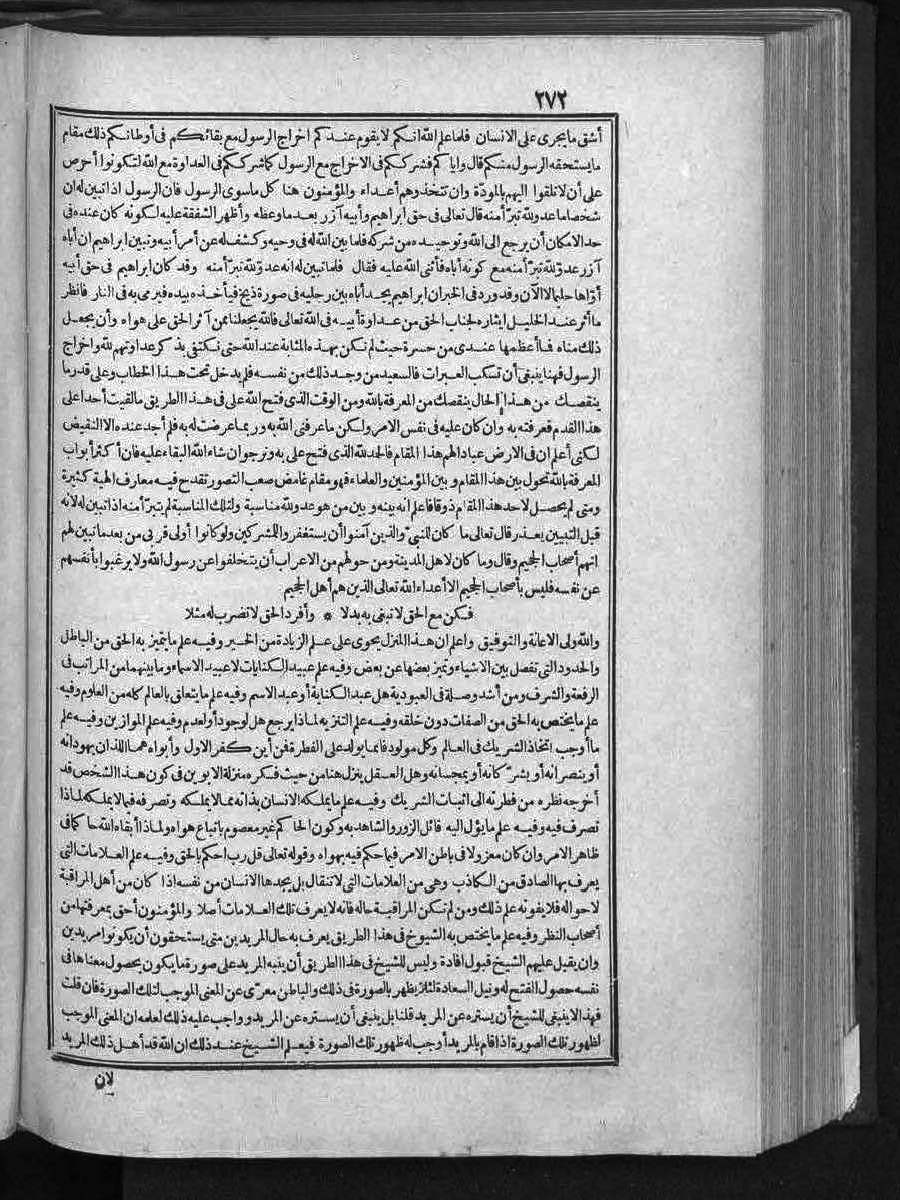 ٢٧٢
أشق ما يجرى على الانسان فلما علم الله انكم لا يقوم عندكم اخراج الرسول مع بقائكم فى أوطانكم ذلك مقام
ما يستحقه الرسول منكم قال واياكم فشرككم فى الاخراج مع الرسول كما شرككم فى العداوة مع الله لتكونوا أحرص
على أن لا تلقوا اليهم بالمودّة وان تتخذوهم أعداء والمؤمنون هنا كل ماسوى الرسول فان الرسول اذا تبين له ان
شخصا ما عدو لله تبرّأ منه قال تعالى فى حق ابراهيم وأبيه آزر بعد ما وعظه وأظهر الشفقة عليه لكونه كان عنده فى
حد الامكان أن يرجع الى الله وتوحيده من شركه فلما بين الله له فى وحيه وكشف له عن أمر أبيه وتبين ابراهيم ان أباه
آزر عدوّ لله تبرّأ منه مع كونه أباه فأثنى الله عليه فقال فلما تبين له انه عدوّ لله تبرّأ منه وقد كان ابراهيم فى حق أبيه
أوّاها حليما لا الآن وقد ورد فى الخبر ان ابراهيم يجد أباه بين رجليه فى صورة ذيخ فيأخذه بيده فيرمى به فى النار فانظر
ما أثر عند الخليل ايثاره لجناب الحق من عداوة أبيه فى الله تعالى فالله يجعلنا ممن آثر الحق على هواه وأن يجعل
ذلك مناه فما أعظمها عندى من حسرة حيث لم نكن بهذه المثابة عند الله حتى نكتفى بذكر عداوتهم لله واخراج
الرسول فهنا ينبغى أن تسكب العبرات فالسعيد من وجد ذلك من نفسه فلم يدخل تحت هذا الخطاب وعلى قدر ما
ينقصك من هذا الحال ينقصك من المعرفة بالله ومن الوقت الذى فتح الله على فى هذا الطريق مالقيت أحدا على
هذا القدم فعرفته به وان كان عليه فى نفس الامر ولكن ما عرفنى الله به وربما عرضت له به فلم أجد عنده الا النقيض
لكنى أعلم ان فى الارض عبادا لهم هذا المقام فالحمد لله الذى فتح على به ونرجو ان شاء الله البقاء عليه فان أكثر أبواب
المعرفة بالله تحول بين هذا المقام وبين المؤمنين والعلماء فهو مقام غامض صعب التصور تقدح فيه معارف الهية كثيرة
ومتى لم يحصل لاحد هذا المقام ذوقا فاعلم انه بينه وبين من هو عدو لله مناسبة ولتلك المناسبة لم يتبرّأ منه اذا تبين له لانه
قبل التبيين يعذر قال تعالى ما كان للنبى والذين آمنوا أن يستغفروا للمشركين ولو كانوا أولى قربى من بعد ما تبين لهم
انهم أصحاب الجحيم وقال وما كان لاهل المدينة ومن حولهم من الاعراب أن يتخلفوا عن رسول الله ولا يرغبوا بأنفسهم
عن نفسه فليس بأصحاب الجحيم الا أعداء الله تعالى الذين هم أهل الجحيم
فكن مع الحق لا تبغى به بدلا * وأفرد الحق لا تضرب له مثلا
والله ولى الاعانة والتوفيق واعلم ان هذا المنزل يحوى على علم الزيادة من الخير وفيه علم ما يتميز به الحق من الباطل
والحدود التى تفصل بين الاشياء وتميز بعضها عن بعض وفيه علم عبيد الكنايات لا عبيد الاسماء وما بينهما من المراتب فى
الرفعة والشرف ومن أشد وصلة فى العبودية هل عبد الكناية أو عبد الاسم وفيه علم ما يتعلق بالعالم كله من العلوم وفيه
علم ما يختص به الحق من الصفات دون خلقه وفيه علم التنزيه لماذا يرجع هل لوجود أو لعدم وفيه علم الموازين وفيه علم
ما أوجب اتخاذ الشريك فى العالم وكل مولود فانما يولد على الفطرة فمن أين كفر الاول وأبواه هما اللذان يهودانه
أو ينصرانه أو يشرّكانه أو يمجسانه وهل العقل ينزل هنا من حيث فكره منزلة الابوين فى كون هذا الشخص قد
أخرجه نظره من فطرته الى اثبات الشريك وفيه علم ما يملكه الانسان بذاته مما لا يملكه وتصرفه فيما لا يملكه لماذا
تصرف فيه وفيه علم ما يؤل اليه قائل الزور والشاهد به وكون الحاكم غير معصوم باتباع هواه ولماذا أبقاه الله حاكما فى
ظاهر الامر وان كان معزولا فى باطن الامر فيما حكم فيه بهواه وقوله تعالى قل رب احكم بالحق وفيه علم العلامات التى
يعرف بها الصادق من الكاذب وهى من العلامات التى لا تنقال بل يجدها الانسان من نفسه اذا كان من أهل المراقبة
لاحواله فلا يفوته علم ذلك ومن لم تكن المراقبة حاله فانه لا يعرف تلك العلامات أصلا والمؤمنون أحق بمعرفتها من
أصحاب النظر وفيه علم ما يختص به الشيوخ فى هذا الطريق يعرف به حال المريدين متى يستحقون أن يكونوا مريدين
وان يقبل عليهم الشيخ قبول افادة وليس للشيخ فى هذا الطريق أن ينبه المريد على صورة ما يكون بحصول معناها فى
نفسه حصول الفتح له ونيل السعادة لئلا يظهر بالصورة فى ذلك والباطن معرّى عن المعنى الموجب لتلك الصورة فان قلت
فهذا لا ينبغى للشيخ أن يستره عن المريد قلنا بل ينبغى أن يستره عن المريد وواجب عليه ذلك لعلمه ان المعنى الموجب
لظهور تلك الصورة اذا قام بالمريد أوجب له ظهور تلك الصورة فيعلم الشيخ عند ذلك ان الله قد أهل ذلك المريد
لان